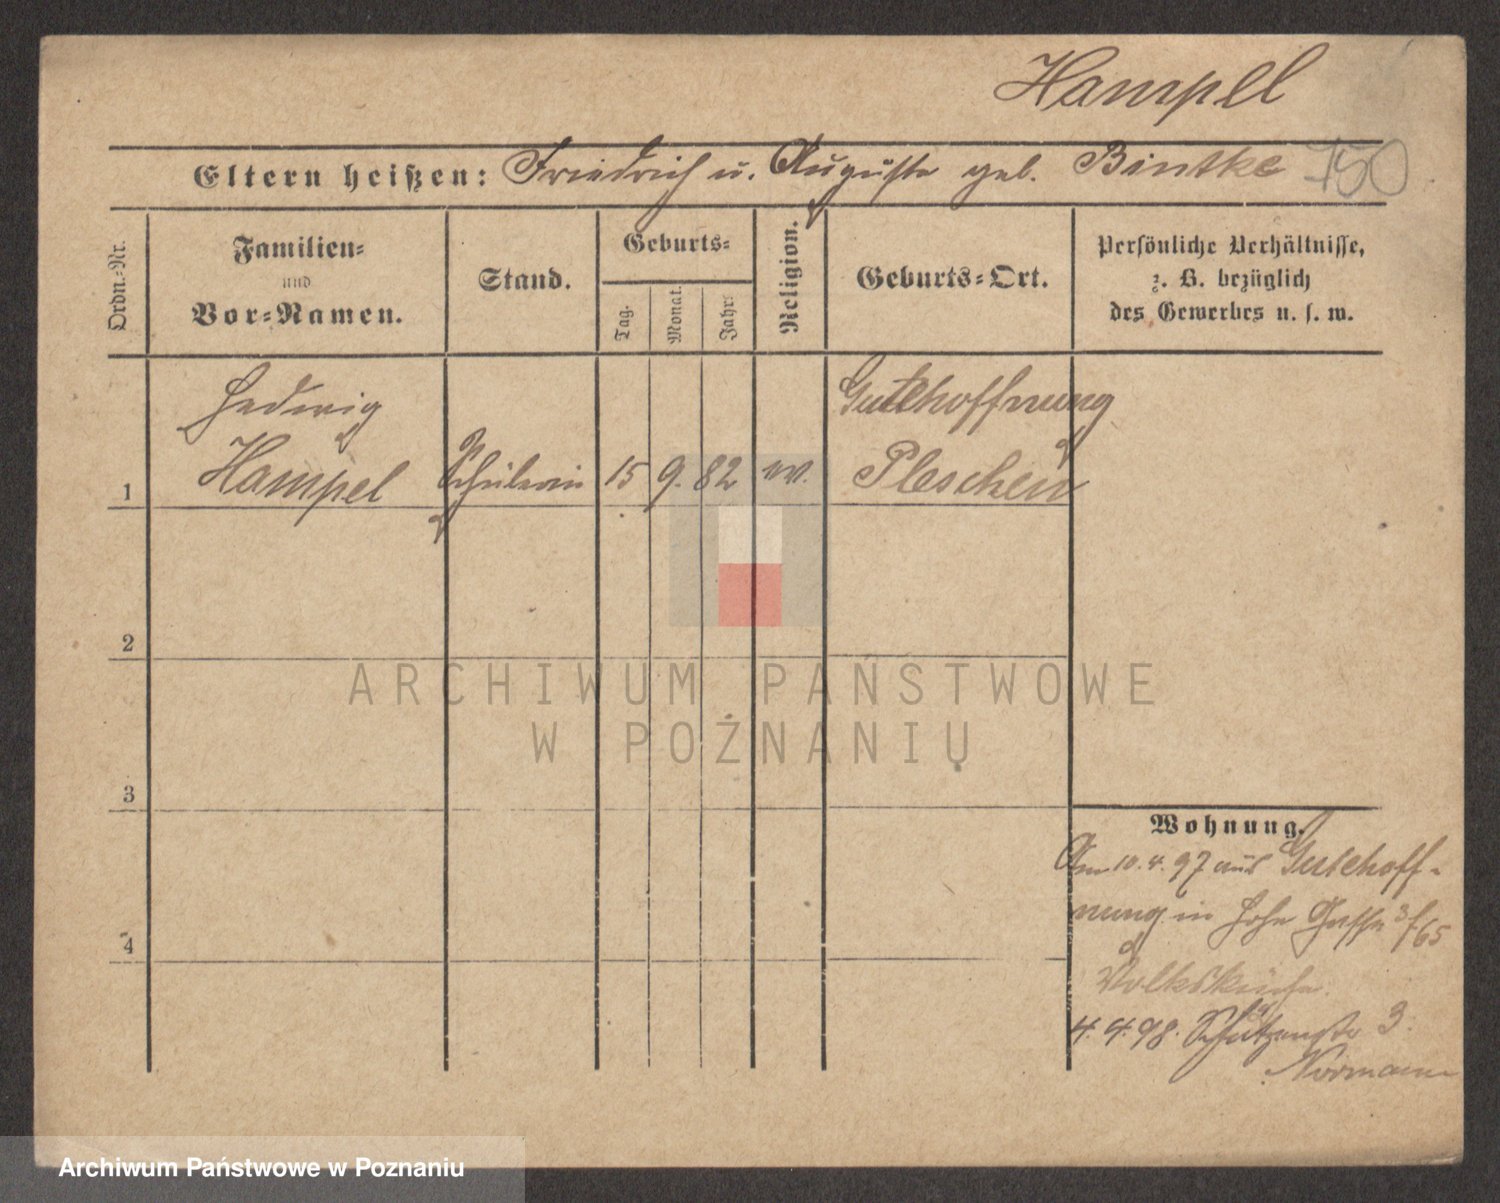 Hampel
Eltern heißen: Friedrich u. Auguste geb. Bintke 150
Ordn.=Nr.
Familien=
und
Vor=Namen.
Stand.
Geburts=
Tag.
Monat.
Jahr:
Religion.
Geburts=Ort.
Persönliche Verhältnisse,
z. B. bezüglich
des Gewerbes u. s. w.
Hedwig
Gutehoffnung
1 Hampel Schülerin 15 9. 82 ev. Pleschen
2
ARCHIWUM PAŃSTWOWE
W POZNANIU
3
Wohnung.
Am 10. 4. 97 aus Gutehoff-
nung in Hohe Gasse 3/65
Volksküche.
4
4. 4. 98. Schützenstr 3.
Normann
Archiwum Państwowe w Poznaniu